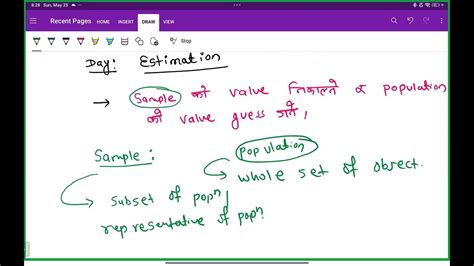 8:28 Sun, May 25
Recent Pages
HOME
INSERT
DRAW
VIEW
Stop
Day: Estimation
→ Sample को value निकालने र population
को value guess गर्ने।
Sample :
population
whole set of object.
subset of popⁿ
representative of popⁿ